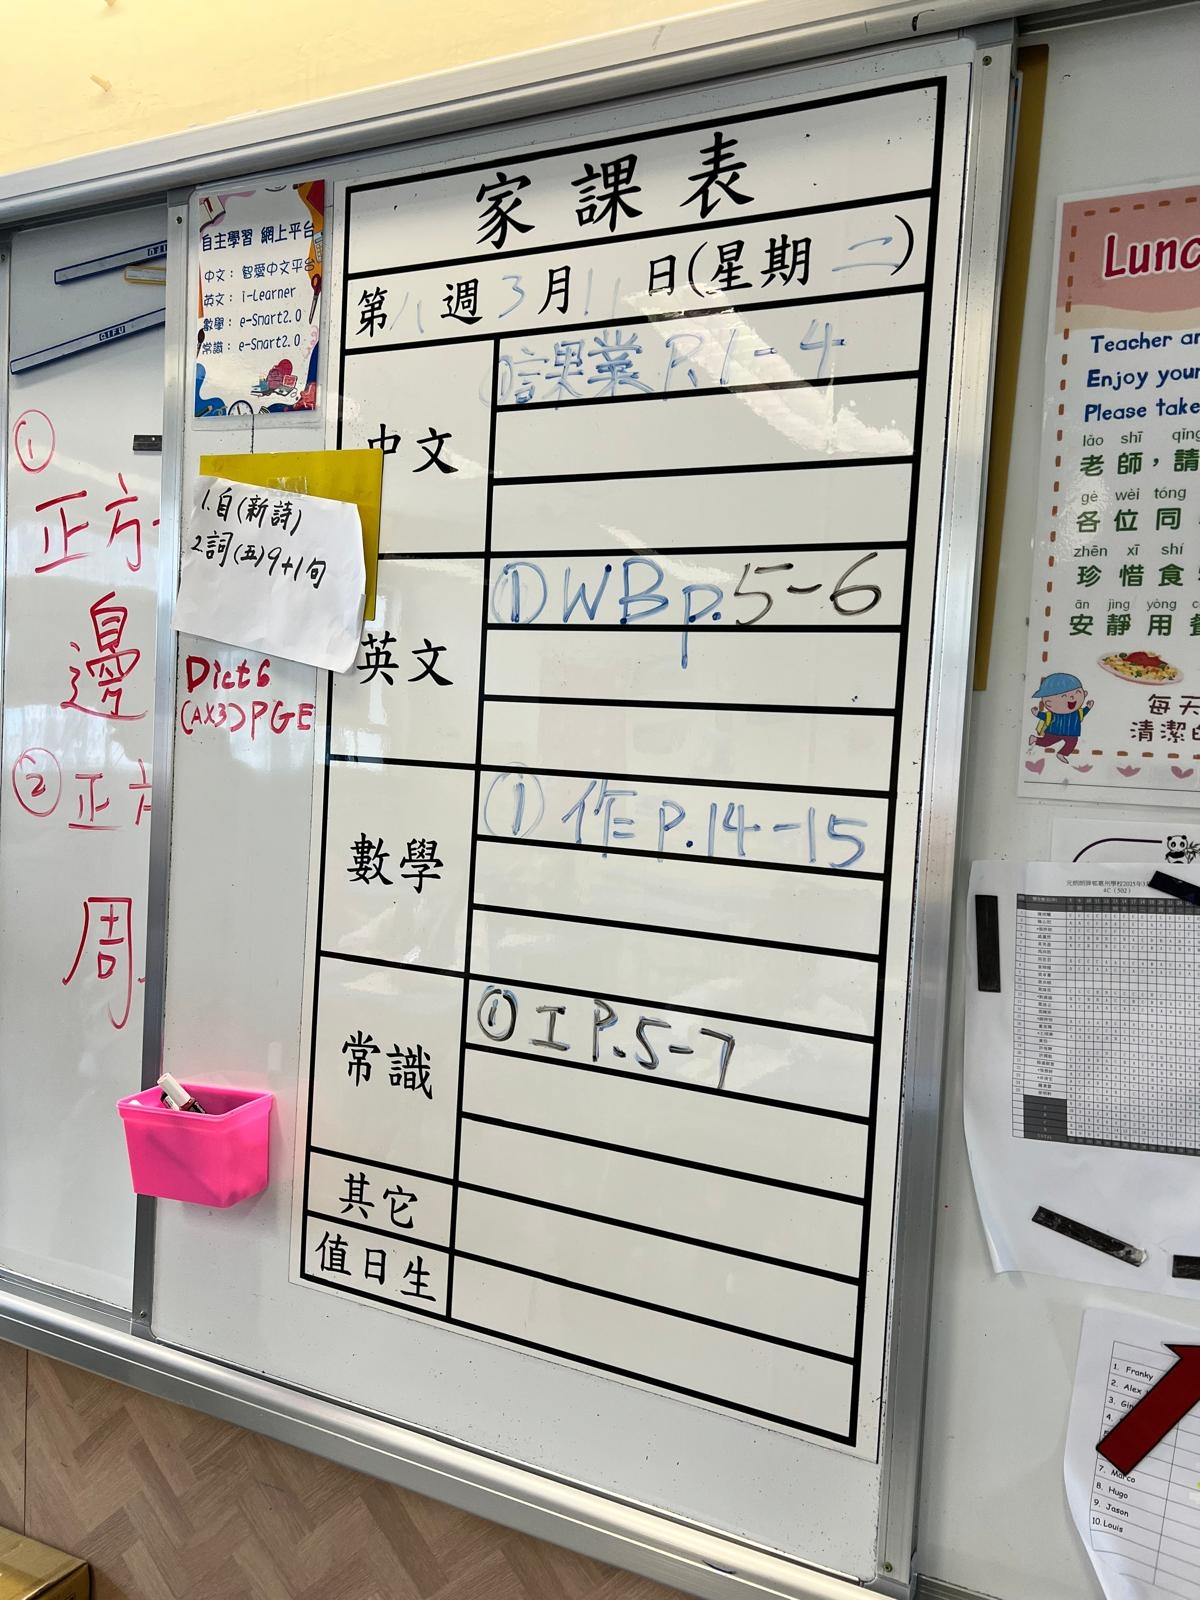 家課表
第八週3月11日(星期二)
中文
①課業P.1-4
英文
①WBp.5-6
數學
①作P.14-15
常識
①工P.5-7
其它
值日生
自主學習 網上平台
中文： 智愛中文平台
英文： i-Learner
數學： e-Smart2.0
常識： e-Smart2.0
1.自(新詩)
2.詞(五)9+1句
Dict6
(AX3)PGE
①
正方
邊
②正方
周
GIFU
Lunc
Teacher an
Enjoy your
Please take
lǎo shī qǐng
老師，請
gè wèi tóng
各位同
zhēn xī shí
珍惜食
ān jìng yòng c
安靜用餐
每天
清潔的
4C (502)
1. Franky
2. Alex
3. Gin
4.
7. Marco
8. Hugo
9. Jason
10. Louis